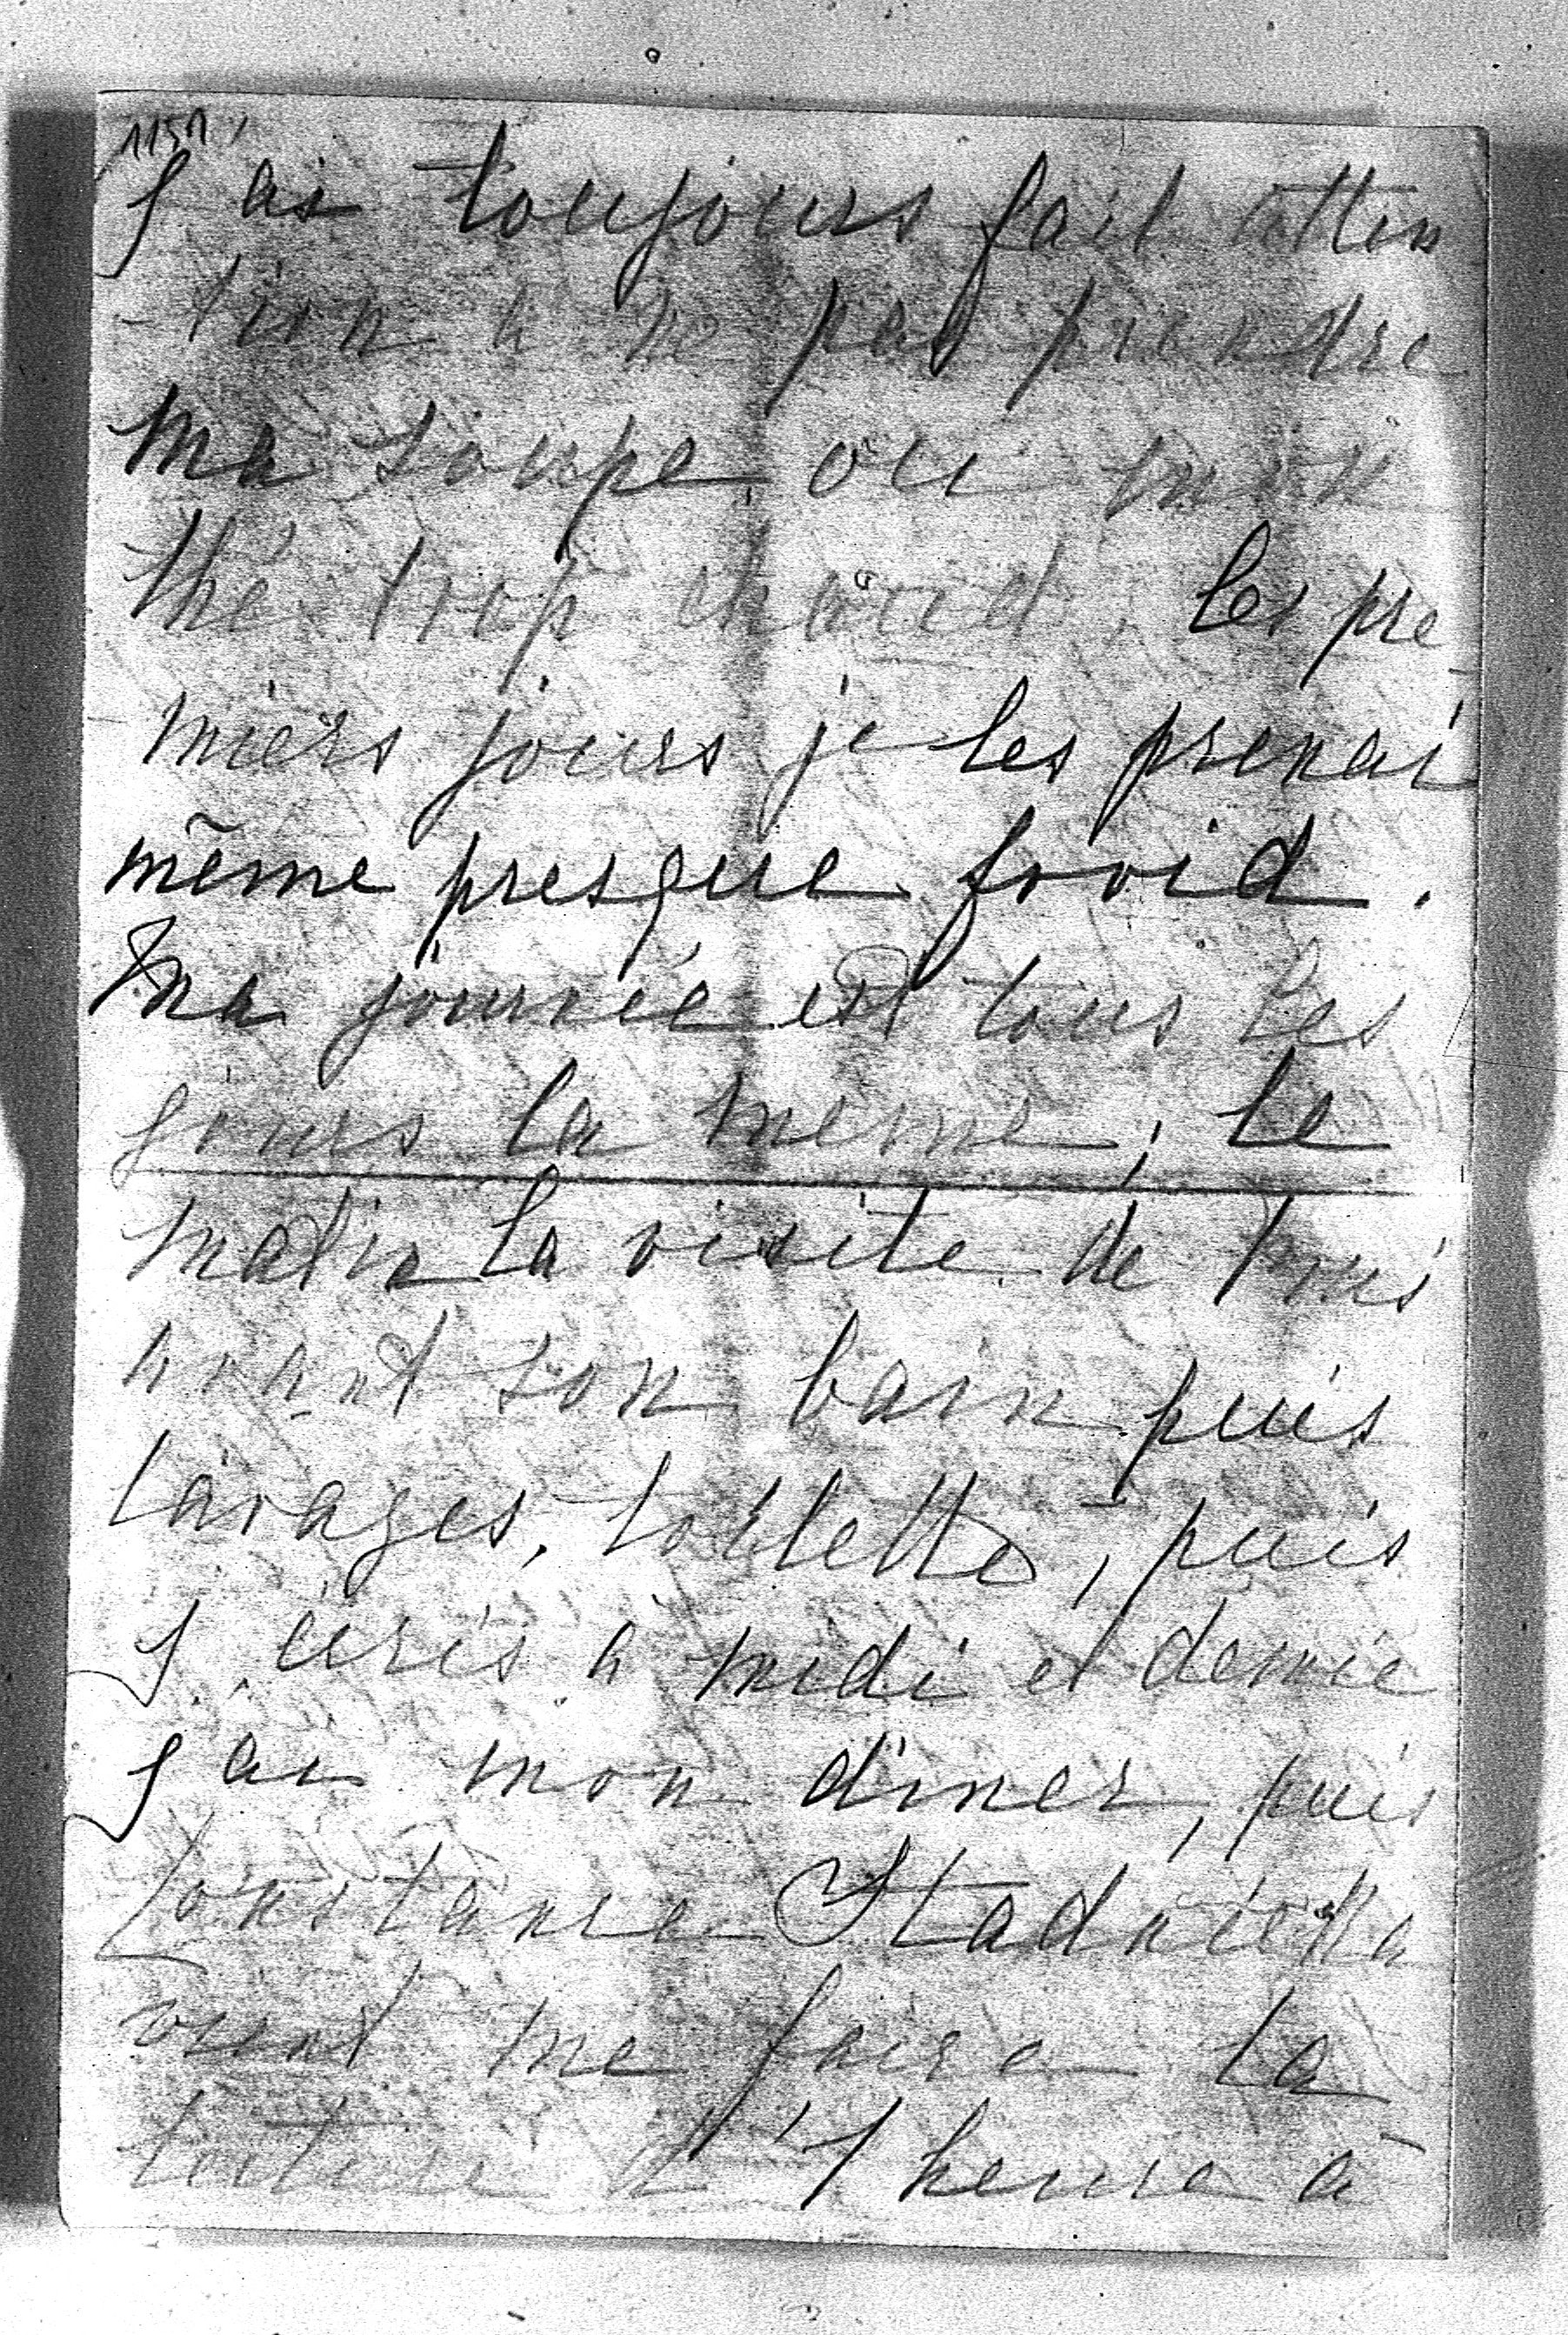 1151
J'ai toujours fait atten
tion à ne pas prendre
ma soupe ou mon
thé trop chaud, les pre-
miers jours je les prenai
même presque froid.
Ma journée est tous les
jours la même, le
matin la visite de
avant son bain puis
lavages, toilette, puis
j'écris à midi et demie
j'ai mon diner, puis
Constance Stadnicka
vient me faire la
lecture d'1 heure à